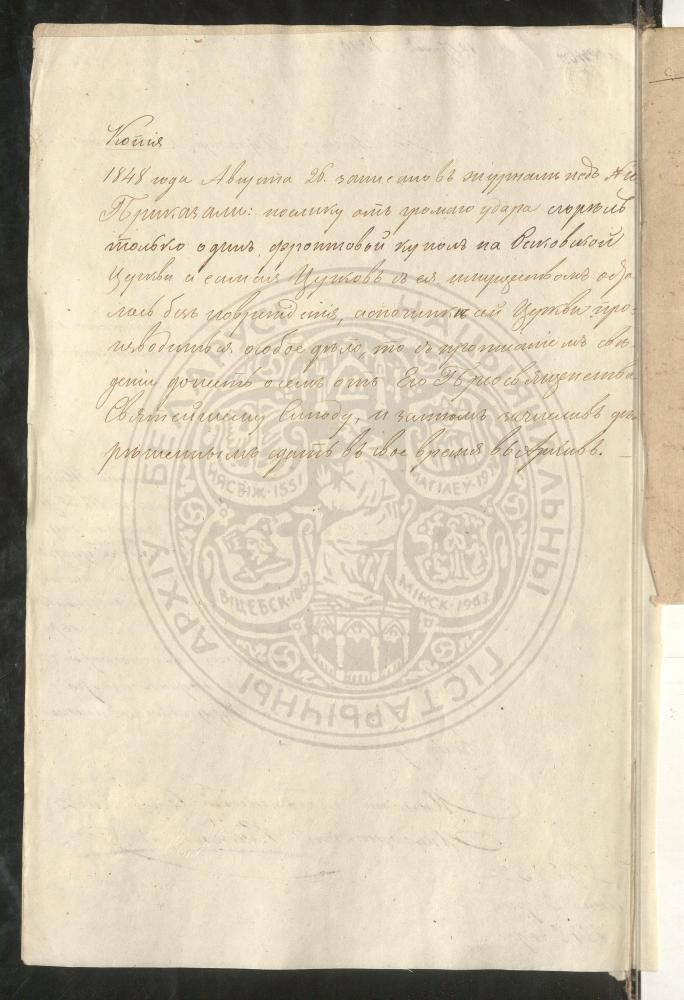 Копія
1848 года Августа 26. записано въ журналѣ подъ №
Приказали: поелику отъ громаго удара сгорѣлъ
только одинъ фронтовый куполъ на Раковской
Церкви а самая Церковь съ ея имуществомъ оста
лась безъ поврежденія, а о починкѣ сей Церкви про-
изводится особое дѣло, то съ прописаніемъ свѣ
денія донесть о семъ отъ Его Преосвященства
Святейшему Синоду, и затемъ зачисливъ дѣ
рѣшеннымъ сдать въ свое время въ Архивъ.
БЕЛАРУСІ НАЦЫЯНАЛЬНЫ ГІСТАРЫЧНЫ АРХІЎ
НЯСВІЖ·1551
МАГІЛЕЎ·19
ВІЦЕБСК·1862
МІНСК·1963